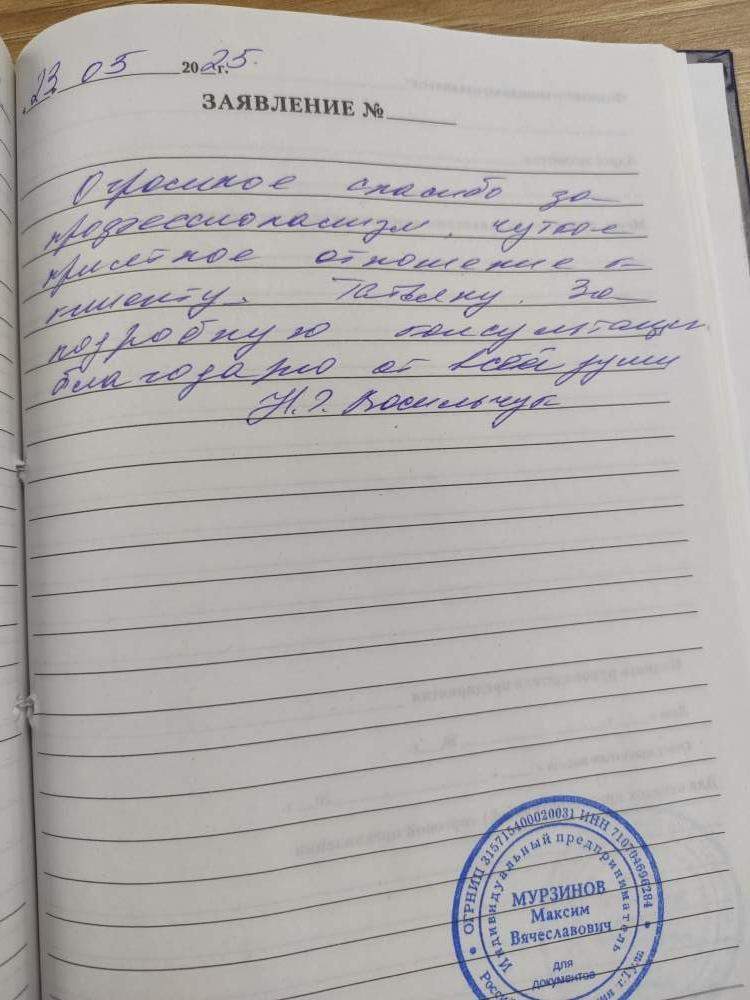 23 05 2025г.
ЗАЯВЛЕНИЕ №
Огромное спасибо за
профессионализм, чуткое
приятное отношение к
клиенту. Татьяну. За
подробную консультацию
благодарю от всей души
Н.Э. Васильчук
ОГРНИП 315715400020031 ИНН 710704696284
Индивидуальный предприниматель
МУРЗИНОВ
Максим
Вячеславович
для
документов
г.Тула